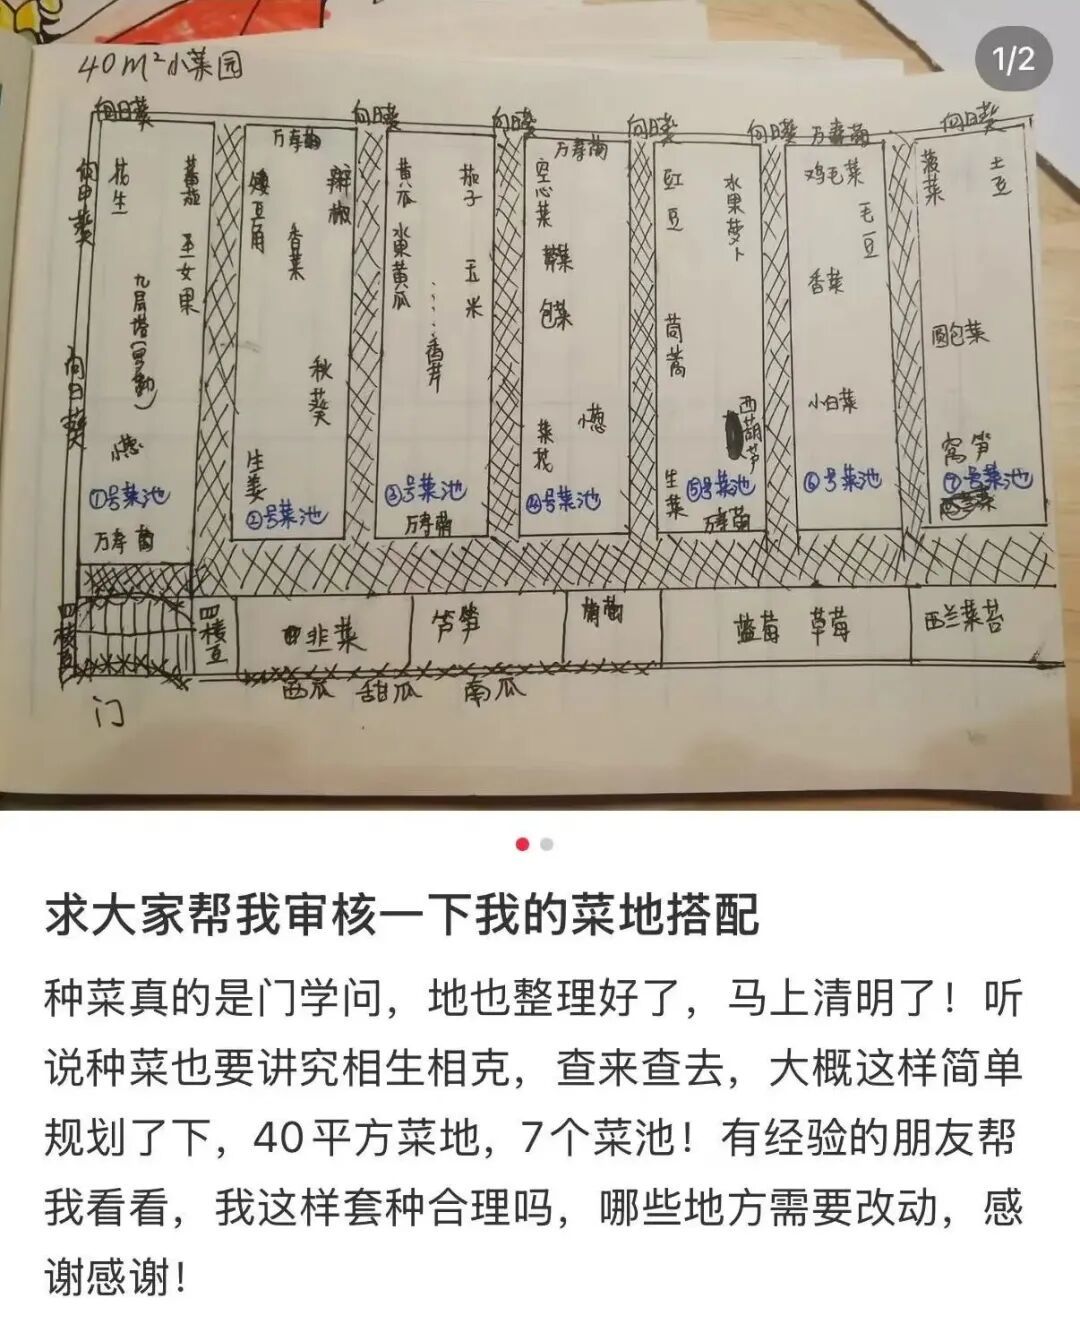 1/2
40m²小菜园
向日葵
向日葵
向日葵
向日葵
向日葵
向日葵
向日葵
向日葵
花生
蕃茄
圣女果
九层塔(罗勒)
小葱
①号菜池
万寿菊
万寿菊
矮豆角
辣椒
香菜
秋葵
生姜
②号菜池
黄瓜
水果黄瓜
茄子
玉米
香芹
③号菜池
万寿菊
万寿菊
空心菜
包菜
菜苔
小葱
④号菜池
豇豆
水果萝卜
茼蒿
西葫芦
生菜
⑤号菜池
万寿菊
万寿菊
鸡毛菜
毛豆
香菜
小白菜
⑥号菜池
菠菜
土豆
圆包菜
窝笋
⑦号菜池
四棱豆
四棱豆
韭菜
芦笋
葡萄
蓝莓
草莓
西兰菜苔
西瓜 甜瓜 南瓜
门
求大家帮我审核一下我的菜地搭配
种菜真的是门学问，地也整理好了，马上清明了！听
说种菜也要讲究相生相克，查来查去，大概这样简单
规划了下，40平方菜地，7个菜池！有经验的朋友帮
我看看，我这样套种合理吗，哪些地方需要改动，感
谢感谢！